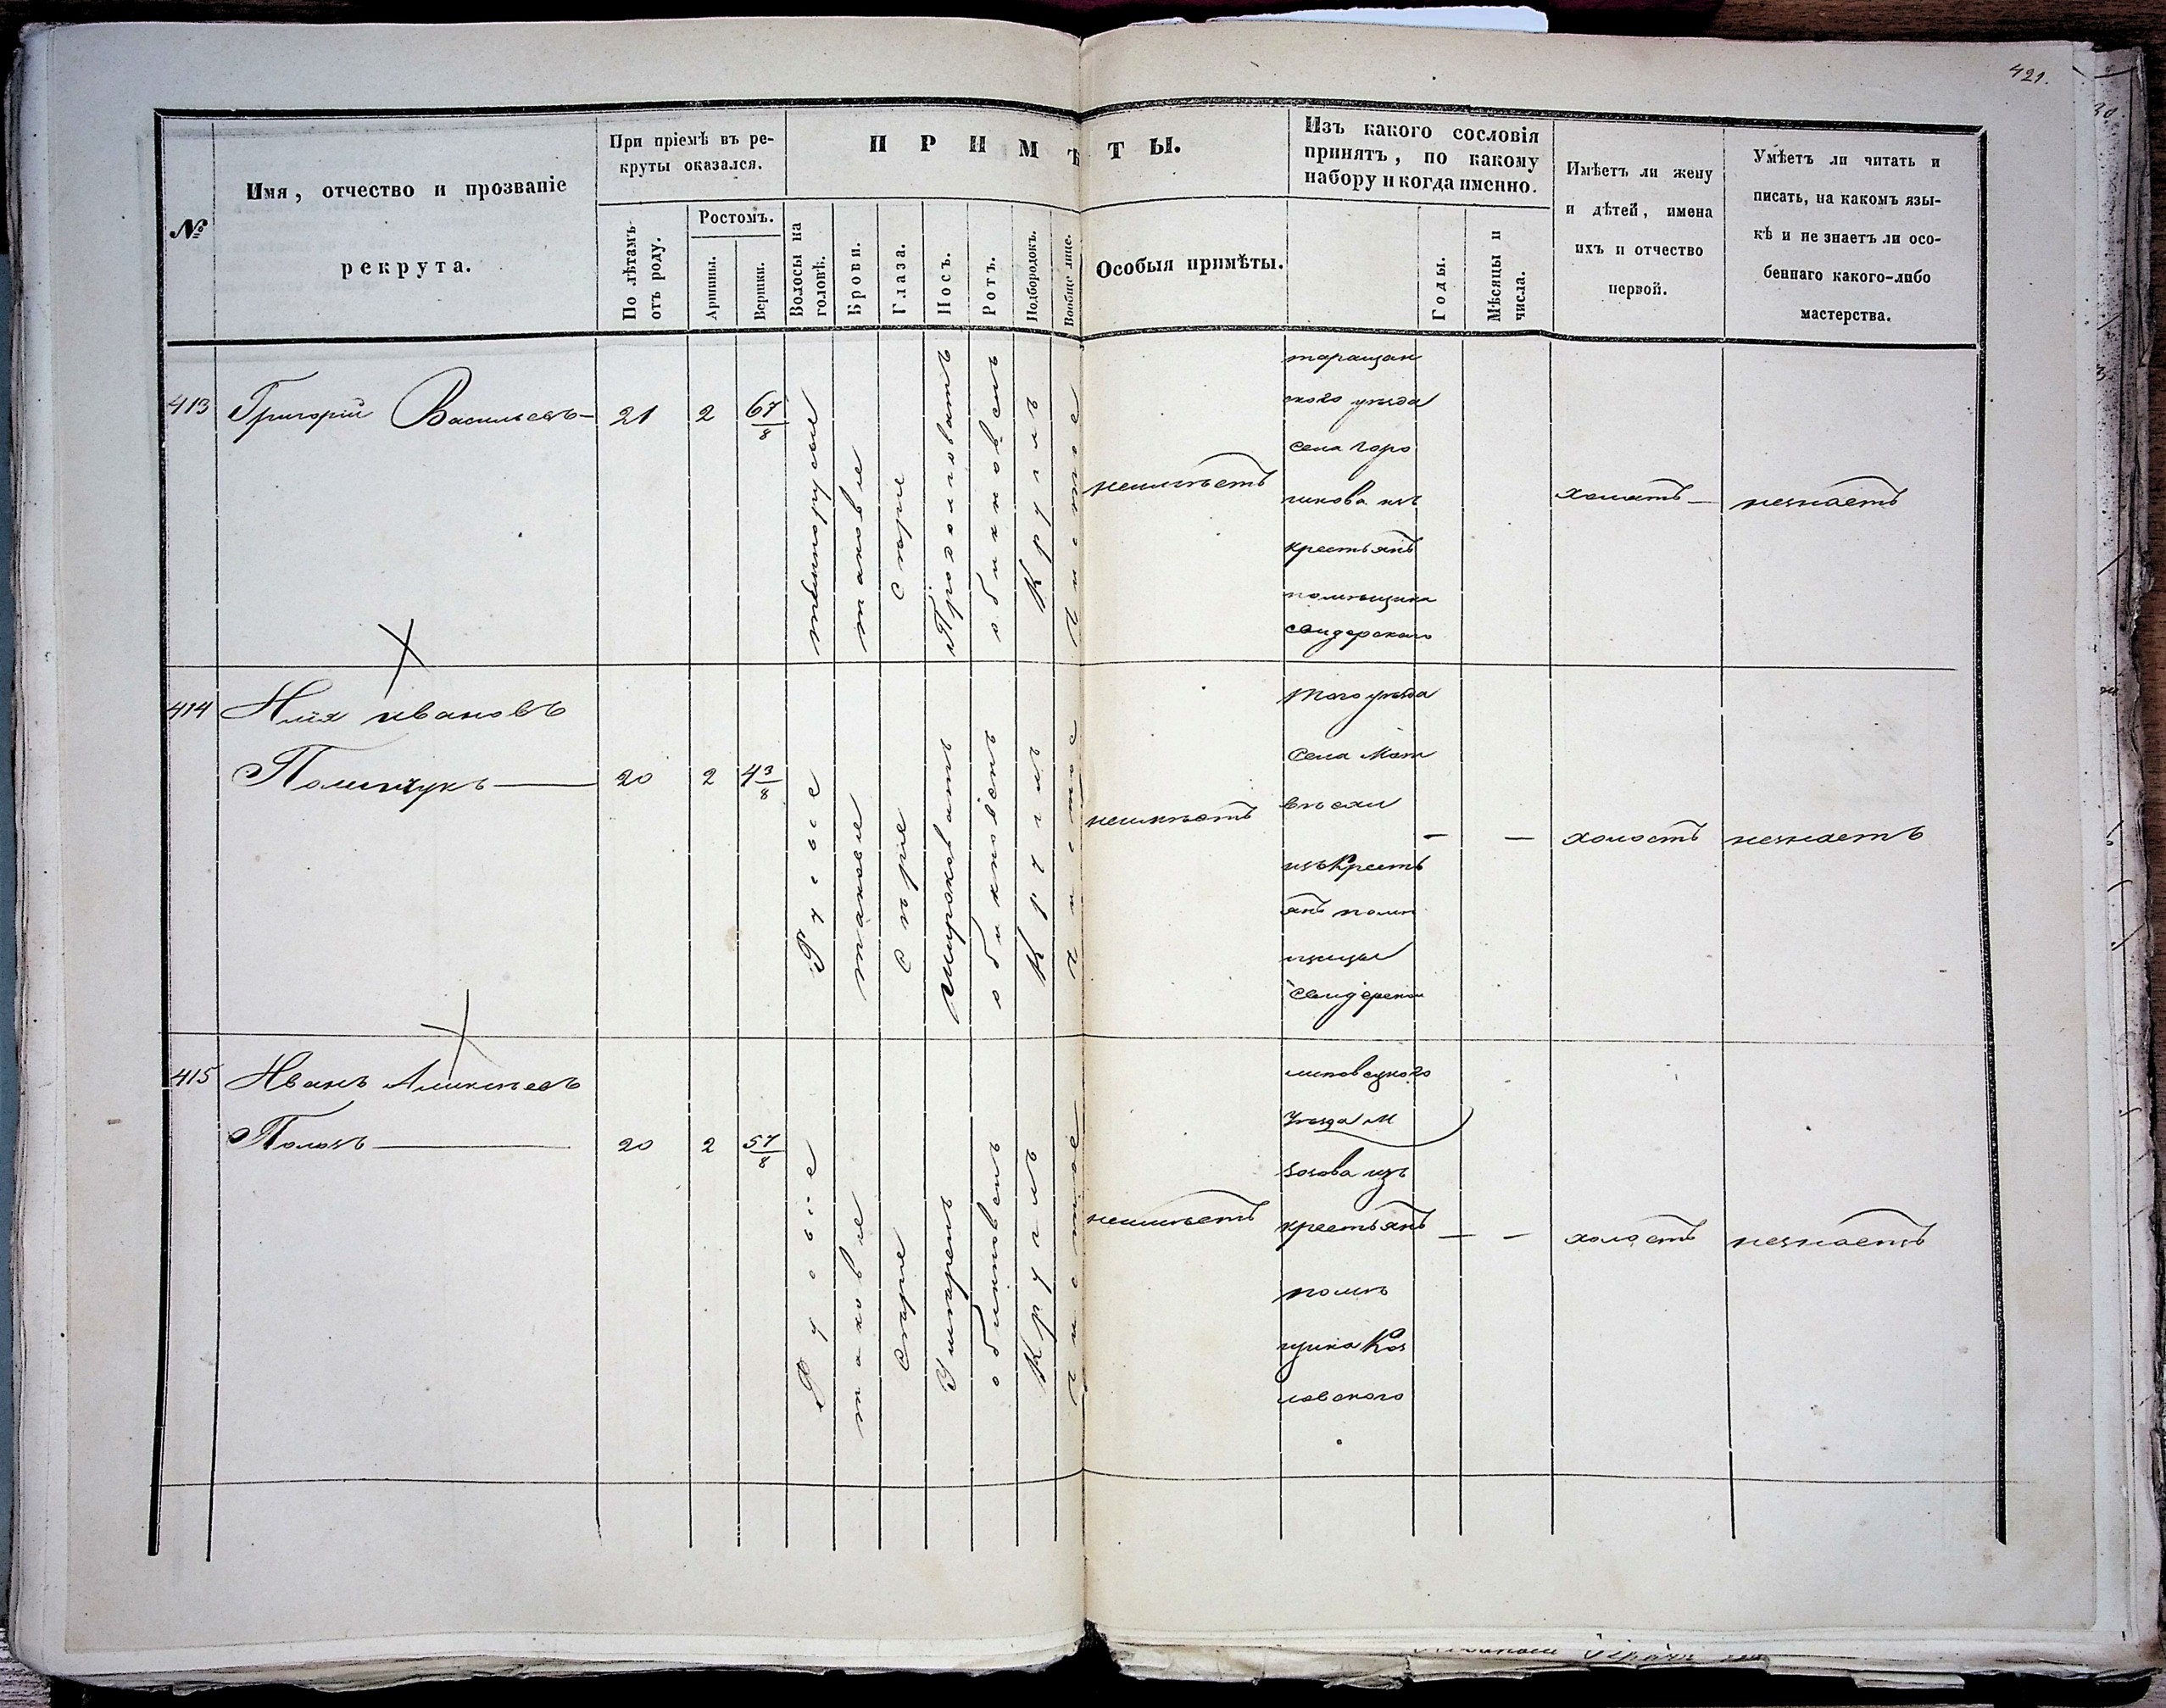 421.
№
Имя, отчество и прозваніе
рекрута.
При пріемѣ въ ре-
круты оказался.
По лѣтамъ
отъ роду.
Ростомъ.
Аршины.
Вершки.
ПРИМѢТЫ.
Волосы на
головѣ.
Брови.
Глаза.
Носъ.
Ротъ.
Подбородокъ.
Вообще лице.
Особыя примѣты.
Изъ какого сословія
принятъ, по какому
набору и когда именно.
Годы.
Мѣсяцы и
числа.
Имѣетъ ли жену
и дѣтей, имена
ихъ и отчество
первой.
Умѣетъ ли читать и
писать, на какомъ язы-
кѣ и не знаетъ ли осо-
беннаго какого-либо
мастерства.
413 Григорій Васильевъ— 21 2 6 7/8
темнорусые
таковые
серые
Продолговатъ
обикновенъ
Круглъ
чистое
неимѣетъ
таращан
ского уѣзда
села горо
ткова изъ
крестьянъ
помѣщика
холостъ—
незнаетъ
414 Илія ивановъ
Полищукъ— 20 2 4 3/8
Русые
таковые
Серые
Широковатъ
обикновенъ
Круглъ
чистое
неимѣетъ
того уѣзда
Села Мат
вѣехи
изъ Кресть
янъ помѣ
щицы
— — холостъ незнаетъ
415 Иванъ Алексѣевъ
20 2 5 7/8
Русые
таковые
Серые
обикновенъ
Круглъ
чистое
неимѣетъ
липовецкого
Уѣзда М
зозова изъ
крестьянъ
помѣ
щика Коз
ловского
— — холостъ незнаетъ